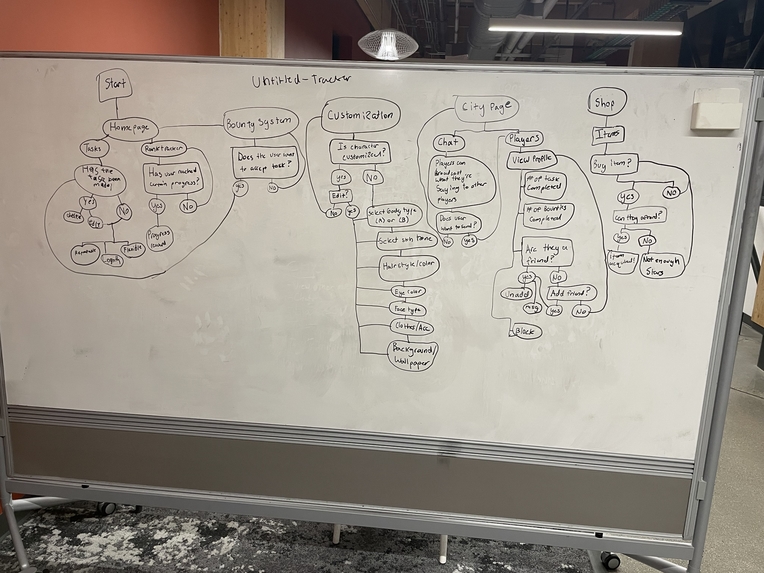 Untitled-Tracker
Start
Homepage
Tasks
Has the
task been
made?
Yes
No
Ranktracker
Has user reached
certain progress?
Yes
No
Progress
Bounty System
Does the user want
to accept task?
yes
No
Customization
Is character
customized?
yes
No
Edit?
No
yes
Select body type
(A) or (B)
Select skin tone
Hairstyle/color
Eye color
Face type
Clothes/Acc
Background/
Wallpaper
City Page
Chat
Players can
broadcast
what they're
saying to other
players
Does user
want to send?
No
yes
Players
View Profile
# of task
Completed
# of Bounties
Completed
Are they a
friend?
yes
No
Unadd
msg
Block
Add friend?
yes
No
Shop
Items
Buy item?
yes
No
Can they afford?
yes
No
Item acquired!
Not enough
Stars